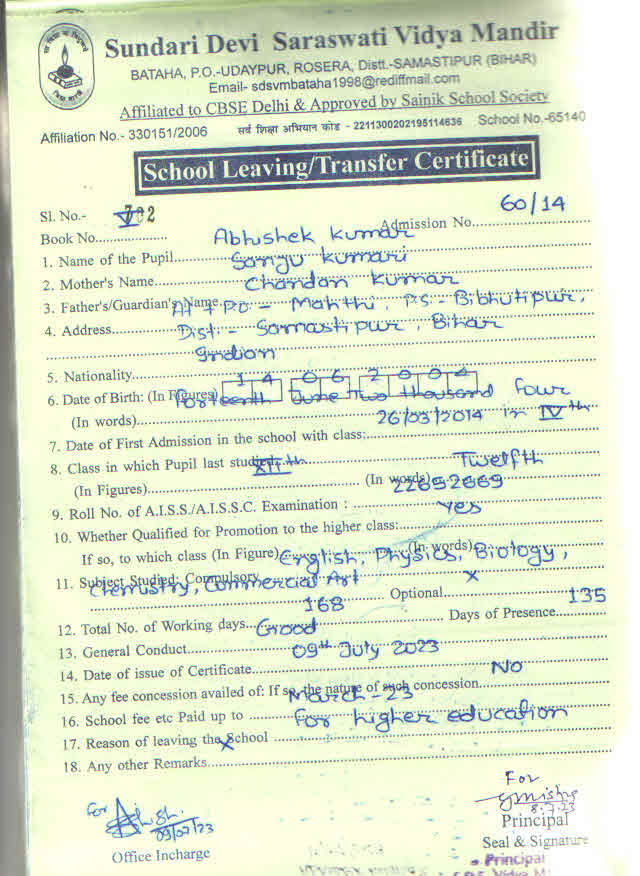 Sundari Devi Saraswati Vidya Mandir
BATAHA, P.O.-UDAYPUR, ROSERA, Distt.-SAMASTIPUR (BIHAR)
Email- sdsvmbataha1998@rediffmail.com
Affiliated to CBSE Delhi & Approved by Sainik School Society
Affiliation No.- 330151/2006 सर्व शिक्षा अभियान कोड - 2211300202195114636 School No.-65140
School Leaving/Transfer Certificate
Sl. No.- 702
Book No.................. Admission No. 60/14
Abhishek Kumar
1. Name of the Pupil... Sanju Kumari
2. Mother's Name... Chandan Kumar
3. Father's/Guardian's Name At + P.O - Mahthi, P.S - Bibhutipur,
4. Address... Dist - Samastipur, Bihar
Indian
5. Nationality... 14 06 2004
6. Date of Birth: (In Figures) Forteenth June Two thousand four
(In words)... 26/03/2014 in IVth
7. Date of First Admission in the school with class:
8. Class in which Pupil last studied XIIth Twelfth
(In Figures)... (In words) 22692669
9. Roll No. of A.I.S.S./A.I.S.S.C. Examination : Yes
10. Whether Qualified for Promotion to the higher class:
If so, to which class (In Figure) (In words) English, Physics, Biology,
11. Subject Studied: Compulsory Chemistry, Commercial Art x
168 Optional... 135
12. Total No. of Working days... Good Days of Presence
13. General Conduct... 09th July 2023
14. Date of issue of Certificate... No
15. Any fee concession availed of: If so, the nature of such concession
March-23
16. School fee etc Paid up to ... For higher education
17. Reason of leaving the School x
18. Any other Remarks
For
For 09/07/23 8.7.23
Principal
Office Incharge Seal & Signature
Principal